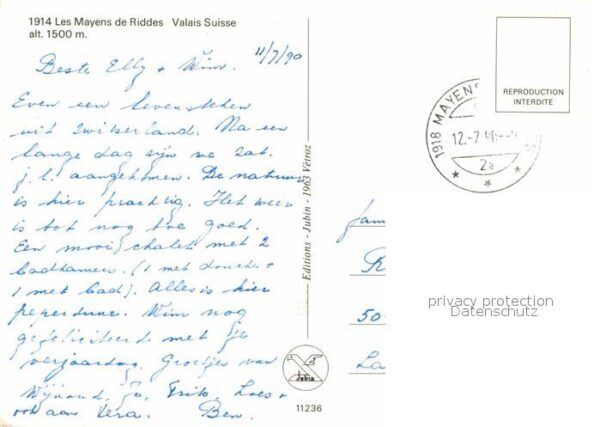 1914 Les Mayens de Riddes Valais Suisse
alt. 1500 m.
11/7/90
Beste Elly + Wim.
Even een levensteken
uit Zwitserland. Na een
lange dag zijn we zat.
j.l. aangekomen. De natuur
is hier prachtig. Het weer
is tot nog toe goed.
Een mooi chalet met 2
badkamers. (1 met douche +
1 met bad). Alles is hier
peperduur. Wim nog
gefeliciteerd met je
verjaardag. Groetjes van
Wijnand, Jo, Frits, Loes +
ook aan Vera. Ben.
Editions - Jubin - 1963 Vétroz
Jubin
11236
REPRODUCTION
INTERDITE
1918 MAYENS
12.-7.90
2a
fam
R
50
La
privacy protection
Datenschutz